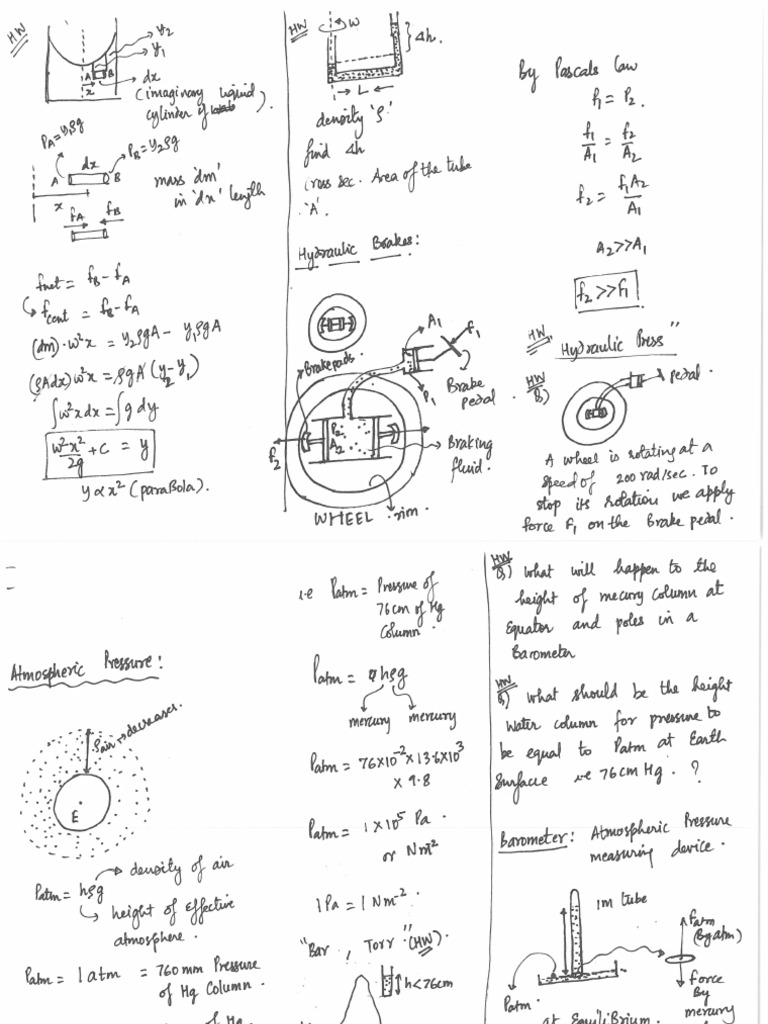 HW
y2
y1
A B
x
dx
(imaginary liquid
cylinder of
).
PA=y1ρg
PB=y2ρg
dx
A B
x
mass 'dm'
in 'dx' length
fA fB
fnet = fB - fA
fcent = fB - fA
(dm)·w²x = y2ρgA - y1ρgA
(ρAdx)w²x = ρgA(y2-y1)
∫w²xdx = ∫g dy
w²x²/2g + C = y
y∝x² (paraBola).
HW
w
Δh.
L
density 'ρ'
find Δh
Cross sec. Area of the tube
'A'.
Hydraulic Brakes:
Brakepads.
A1
f1
P1
Brake
pedal.
P2
A2
f2
Braking
fluid.
WHEEL
rim.
By Pascals law
P1 = P2.
f1/A1 = f2/A2
f2 = f1A2/A1
A2>>A1
f2>>f1
HW
"Hydraulic Press"
HW
Q)
pedal.
A wheel is rotating at a
speed of 200 rad/sec. To
stop its rotation we apply
force f1 on the Brake pedal.
Atmospheric Pressure:
Pair→decreases.
E
Patm = hρg
density of air
height of effective
atmosphere.
Patm = 1 atm = 760mm Pressure
of Hg Column.
of Hg
i.e Patm = Pressure of
76cm of Hg
Column.
Patm = hρg
mercury mercury
Patm = 76×10⁻²×13.6×10³
×9.8
Patm = 1×10⁵ Pa.
or Nm⁻²
1Pa = 1Nm⁻².
"Bar, Torr" (HW).
h<76cm
HW
Q) what will happen to the
height of mecury Column at
Equator and poles in a
Barometer
HW
Q) what should be the height
water column for pressure to
be equal to Patm at Earth
Surface i.e 76cm Hg. ?
Barometer: Atmospheric Pressure
measuring device.
1m tube
Patm.
fatm
(By atm)
force
By
mercury
at Equilibrium.